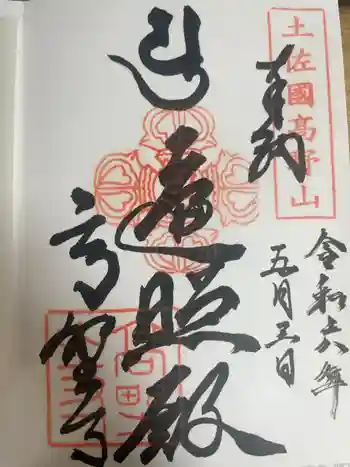 土佐國高野山
奉納
令和六年
五月五日
遍照殿
高野寺